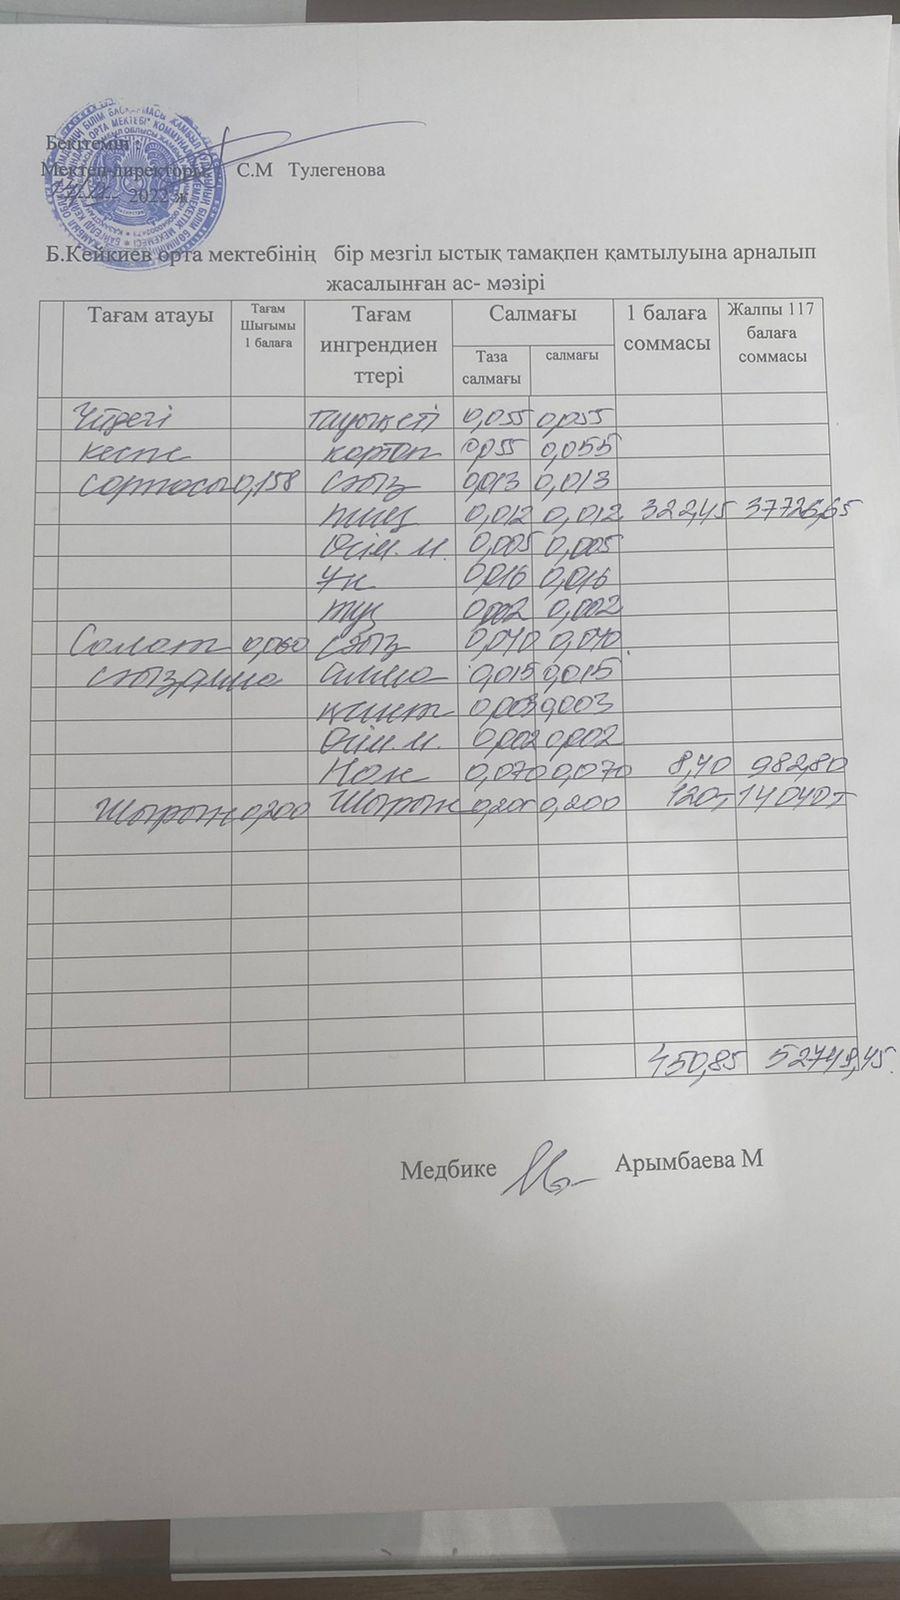 Бекітемін :
Мектеп директоры: С.М Тулегенова
2022 ж.
Б.Кейкиев орта мектебінің бір мезгіл ыстық тамақпен қамтылуына арналып
жасалынған ас- мәзірі
Тағам атауы Тағам Шығымы 1 балаға Тағам ингрендиен ттері Салмағы 1 балаға соммасы Жалпы 117 балаға соммасы
Таза салмағы салмағы
Үйдегі тауық еті 0,055 0,055
кеспе картоп 0,055 0,055
сорпасы 0,158 сәбіз 0,013 0,013
пияз 0,012 0,012 322,45 37726,65
Өсім.м. 0,005 0,005
Ұн 0,016 0,016
тұз 0,002 0,002
Салат 0,060 сәбіз 0,040 0,040
сәбіз,алма алма 0,015 0,015
қант 0,003 0,003
Өсім.м. 0,002 0,002
Нан 0,070 0,070 8,40 982,80
Шырын 0,200 Шырын 0,200 0,200 120т 14040т
450,85 52749,45
Медбике Арымбаева М